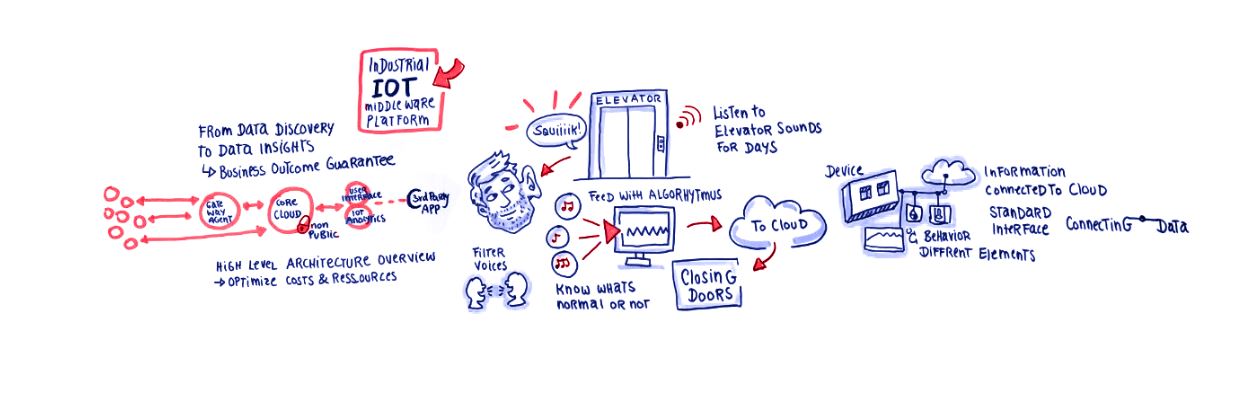 InDuSTRIAL
IOT
MIDDLE WARE
PLATFORM
FROM DATA DISCOVERY
TO DATA INSIGHTS
↳ BUSINESS OUTCOME GUARANTEE
GATE
WAY
AGENT
CORE
CLOUD
non
PUBLIC
USER
INTERFACE
IOT
ANALYTICS
3rd PARTY
APP
HIGH LEVEL ARCHITECTURE OVERVIEW
→ OPTIMIZE COSTS & RESSOURCES
Squiiiik!
ELEVATOR
LISTEN TO
ELEVATOR SOUNDS
FOR DAYS
FEED WITH ALGORHYTMUS
FILTER
VOICES
KNOW WHATS
NORMAL OR NOT
TO CLOUD
CLOSING
DOORS
DEVICE
INFORMATION
CONNECTED TO CLOUD
STANDARD
INTERFACE
CONNECTING DATA
BEHAVIOR
DIFFRENT ELEMENTS